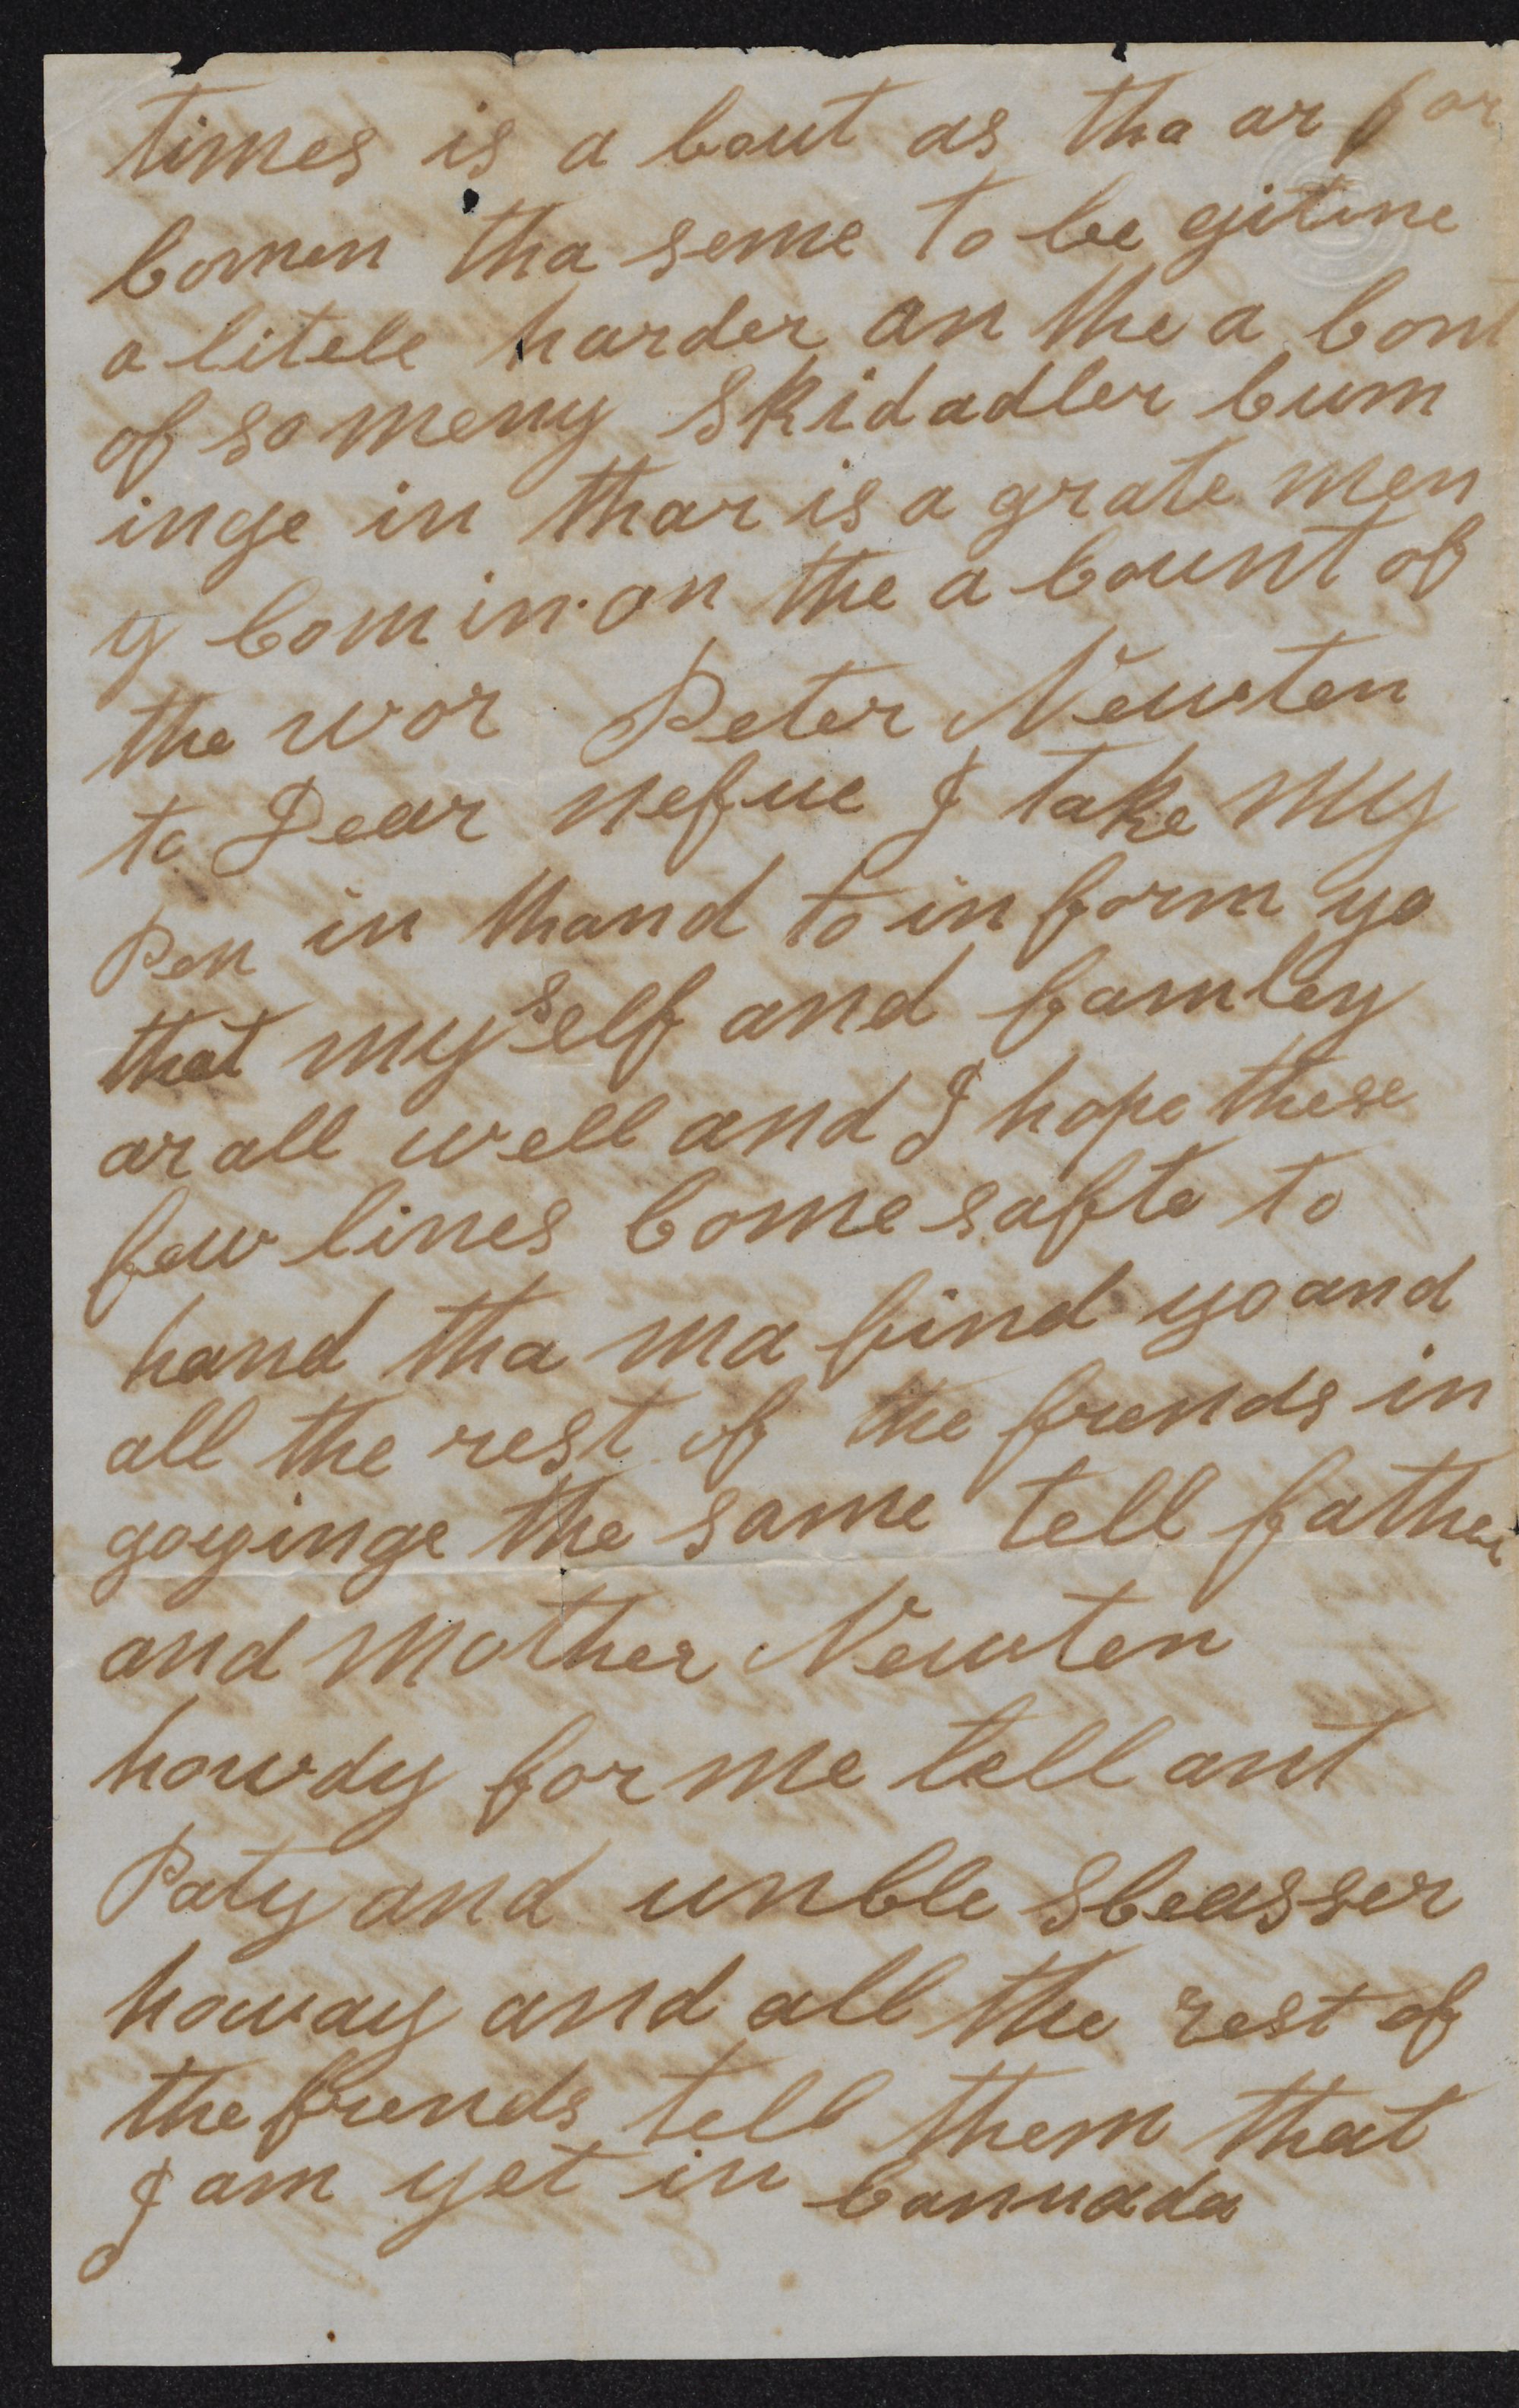 times is a bout as tha ar for
comen tha seme to be gitine
a litele harder on the a count
of so meny Skidadler cum
inge in thar is a grate men
y comin on the a count of
the wor Peter Newten
to Dear nefue I take my
Pen in hand to in form yo
that my self and famley
ar all well and I hope these
few lines come safte to
hand tha ma find yo and
all the rest of the frends in
goyinge the same tell father
and mother Newten
howdy for me tell ant
Paty and uncle
howdy and all the rest of
the frends tell them that
I am yet in cannada